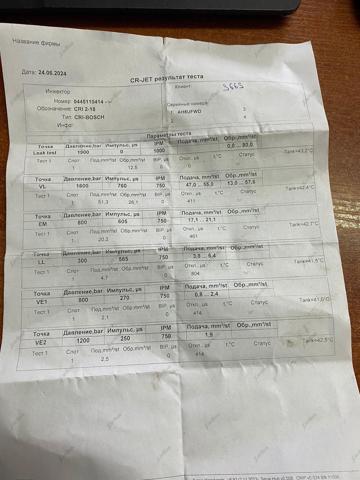 Название фирмы
Дата: 24.06.2024
CR-JET результат теста
Инжектор
Клиент:
Номер: 0445115414 -->
Обозначение: CRI 2-18
Тип: CRI-BOSCH
Инфо:
Серийные номера:
1 AH8UFWD 3
2 4
Параметры теста
Точка Давление,bar Импульс, µs IPM Подача, mm³/st Обр.,mm³/st
Leak test 1900 0 1000 0,0 ... 80,0
Тест 1 Слот Под.mm³/st Обр.mm³/st BIP, µs Подача t,°C Обр. t,°C Статус Tank=43,2°C
1 12,5 0 0
Точка Давление,bar Импульс, µs IPM Подача, mm³/st Обр.,mm³/st
VL 1600 760 750 47,0 ... 55,0 13,0 ... 57,6
Тест 1 Слот Под.mm³/st Обр.mm³/st BIP, µs Отв. t,°C Статус Tank=42,4°C
1 51,3 26,1 0 411
Точка Давление,bar Импульс, µs IPM Подача, mm³/st Обр.,mm³/st
EM 800 605 750 17,1 ... 21,1
Тест 1 Слот Под.mm³/st Обр.mm³/st BIP, µs Отв. t,°C Статус Tank=42,7°C
1 20,2 0 461
Точка Давление,bar Импульс, µs IPM Подача, mm³/st Обр.,mm³/st
LL 300 565 750 3,8 ... 6,4
Тест 1 Слот Под.mm³/st Обр.mm³/st BIP, µs Отв. t,°C Статус Tank=41,5°C
1 4,7 0 604
Точка Давление,bar Импульс, µs IPM Подача, mm³/st Обр.,mm³/st
VE1 800 270 750 0,8 ... 2,4
Тест 1 Слот Под.mm³/st Обр.mm³/st BIP, µs Отв. t,°C Статус
1 2,1 0 414
Точка Давление,bar Импульс, µs IPM Подача, mm³/st Обр.,mm³/st
VE2 1200 250 750
Тест 1 Слот Под.mm³/st Обр.mm³/st BIP, µs Отв. t,°C Статус Tank=42,5°C
1 2,5 0 414